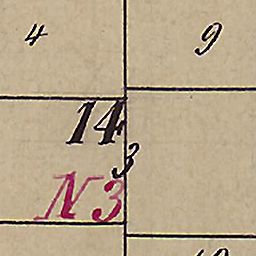 4
9
14
3
N 3